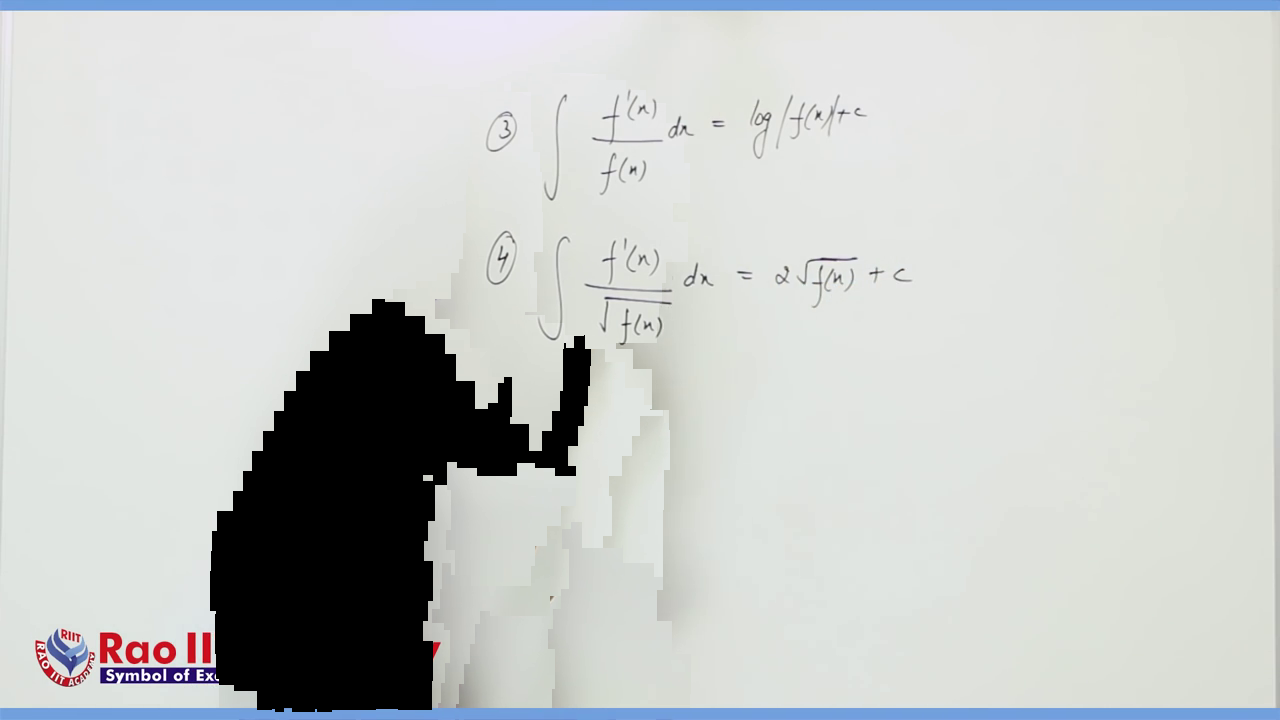 ③ ∫ f'(x)/f(x) dx = log|f(x)|+c
④ ∫ f'(x)/√f(x) dx = 2√f(x) + c
RIIT
RAO IIT ACADEMY
Rao II
Symbol of Ex